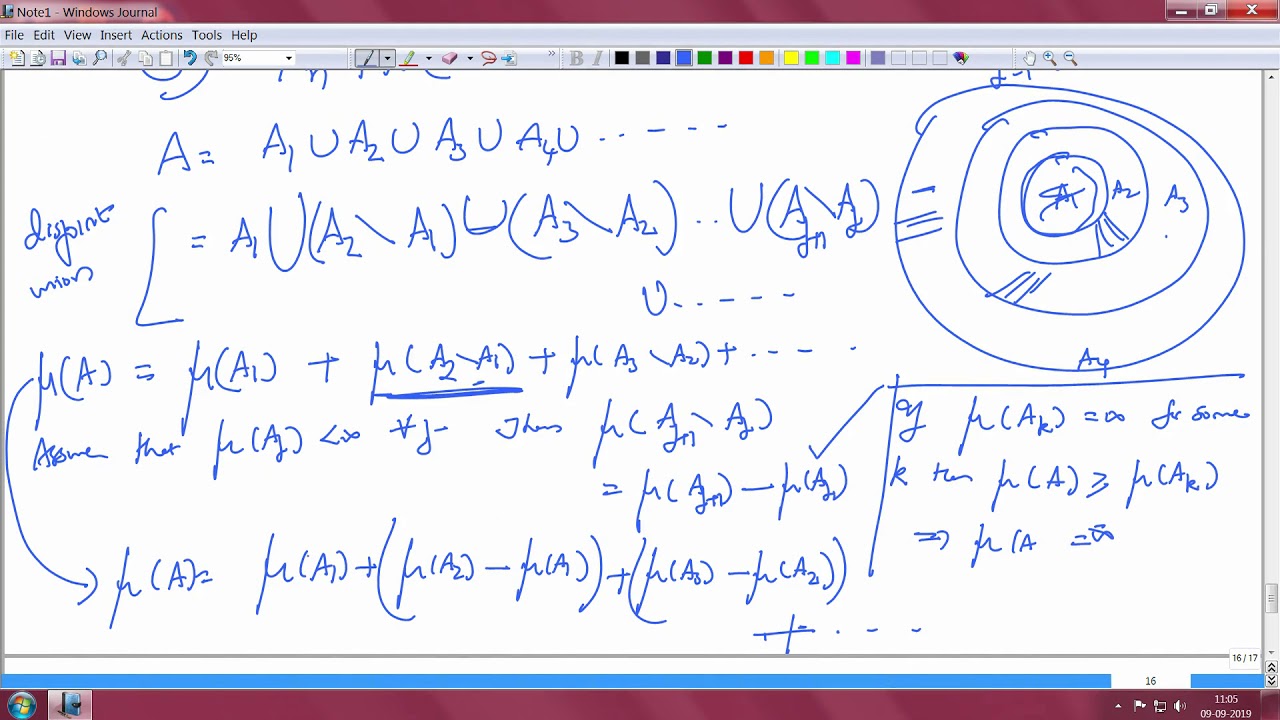 Note1 - Windows Journal
File Edit View Insert Actions Tools Help
95%
A = A₁ ∪ A₂ ∪ A₃ ∪ A₄ ∪ ......
disjoint union
= A₁ ∪ (A₂ ∖ A₁) ∪ (A₃ ∖ A₂) .. ∪ (A_{j+1} ∖ A_j)
∪ ......
A₂ A₃
A₄
μ(A) = μ(A₁) + μ(A₂ ∖ A₁) + μ(A₃ ∖ A₂) + ......
Assume that μ(A_j) < ∞ ∀ j. Then μ(A_{j+1} ∖ A_j)
= μ(A_{j+1}) − μ(A_j)
If μ(A_k) = ∞ for some
k then μ(A) ≥ μ(A_k)
⇒ μ(A = ∞
μ(A) = μ(A₁) + (μ(A₂) − μ(A₁)) + (μ(A₃) − μ(A₂))
+ . - - -
16 / 17
16
11:05
09-09-2019